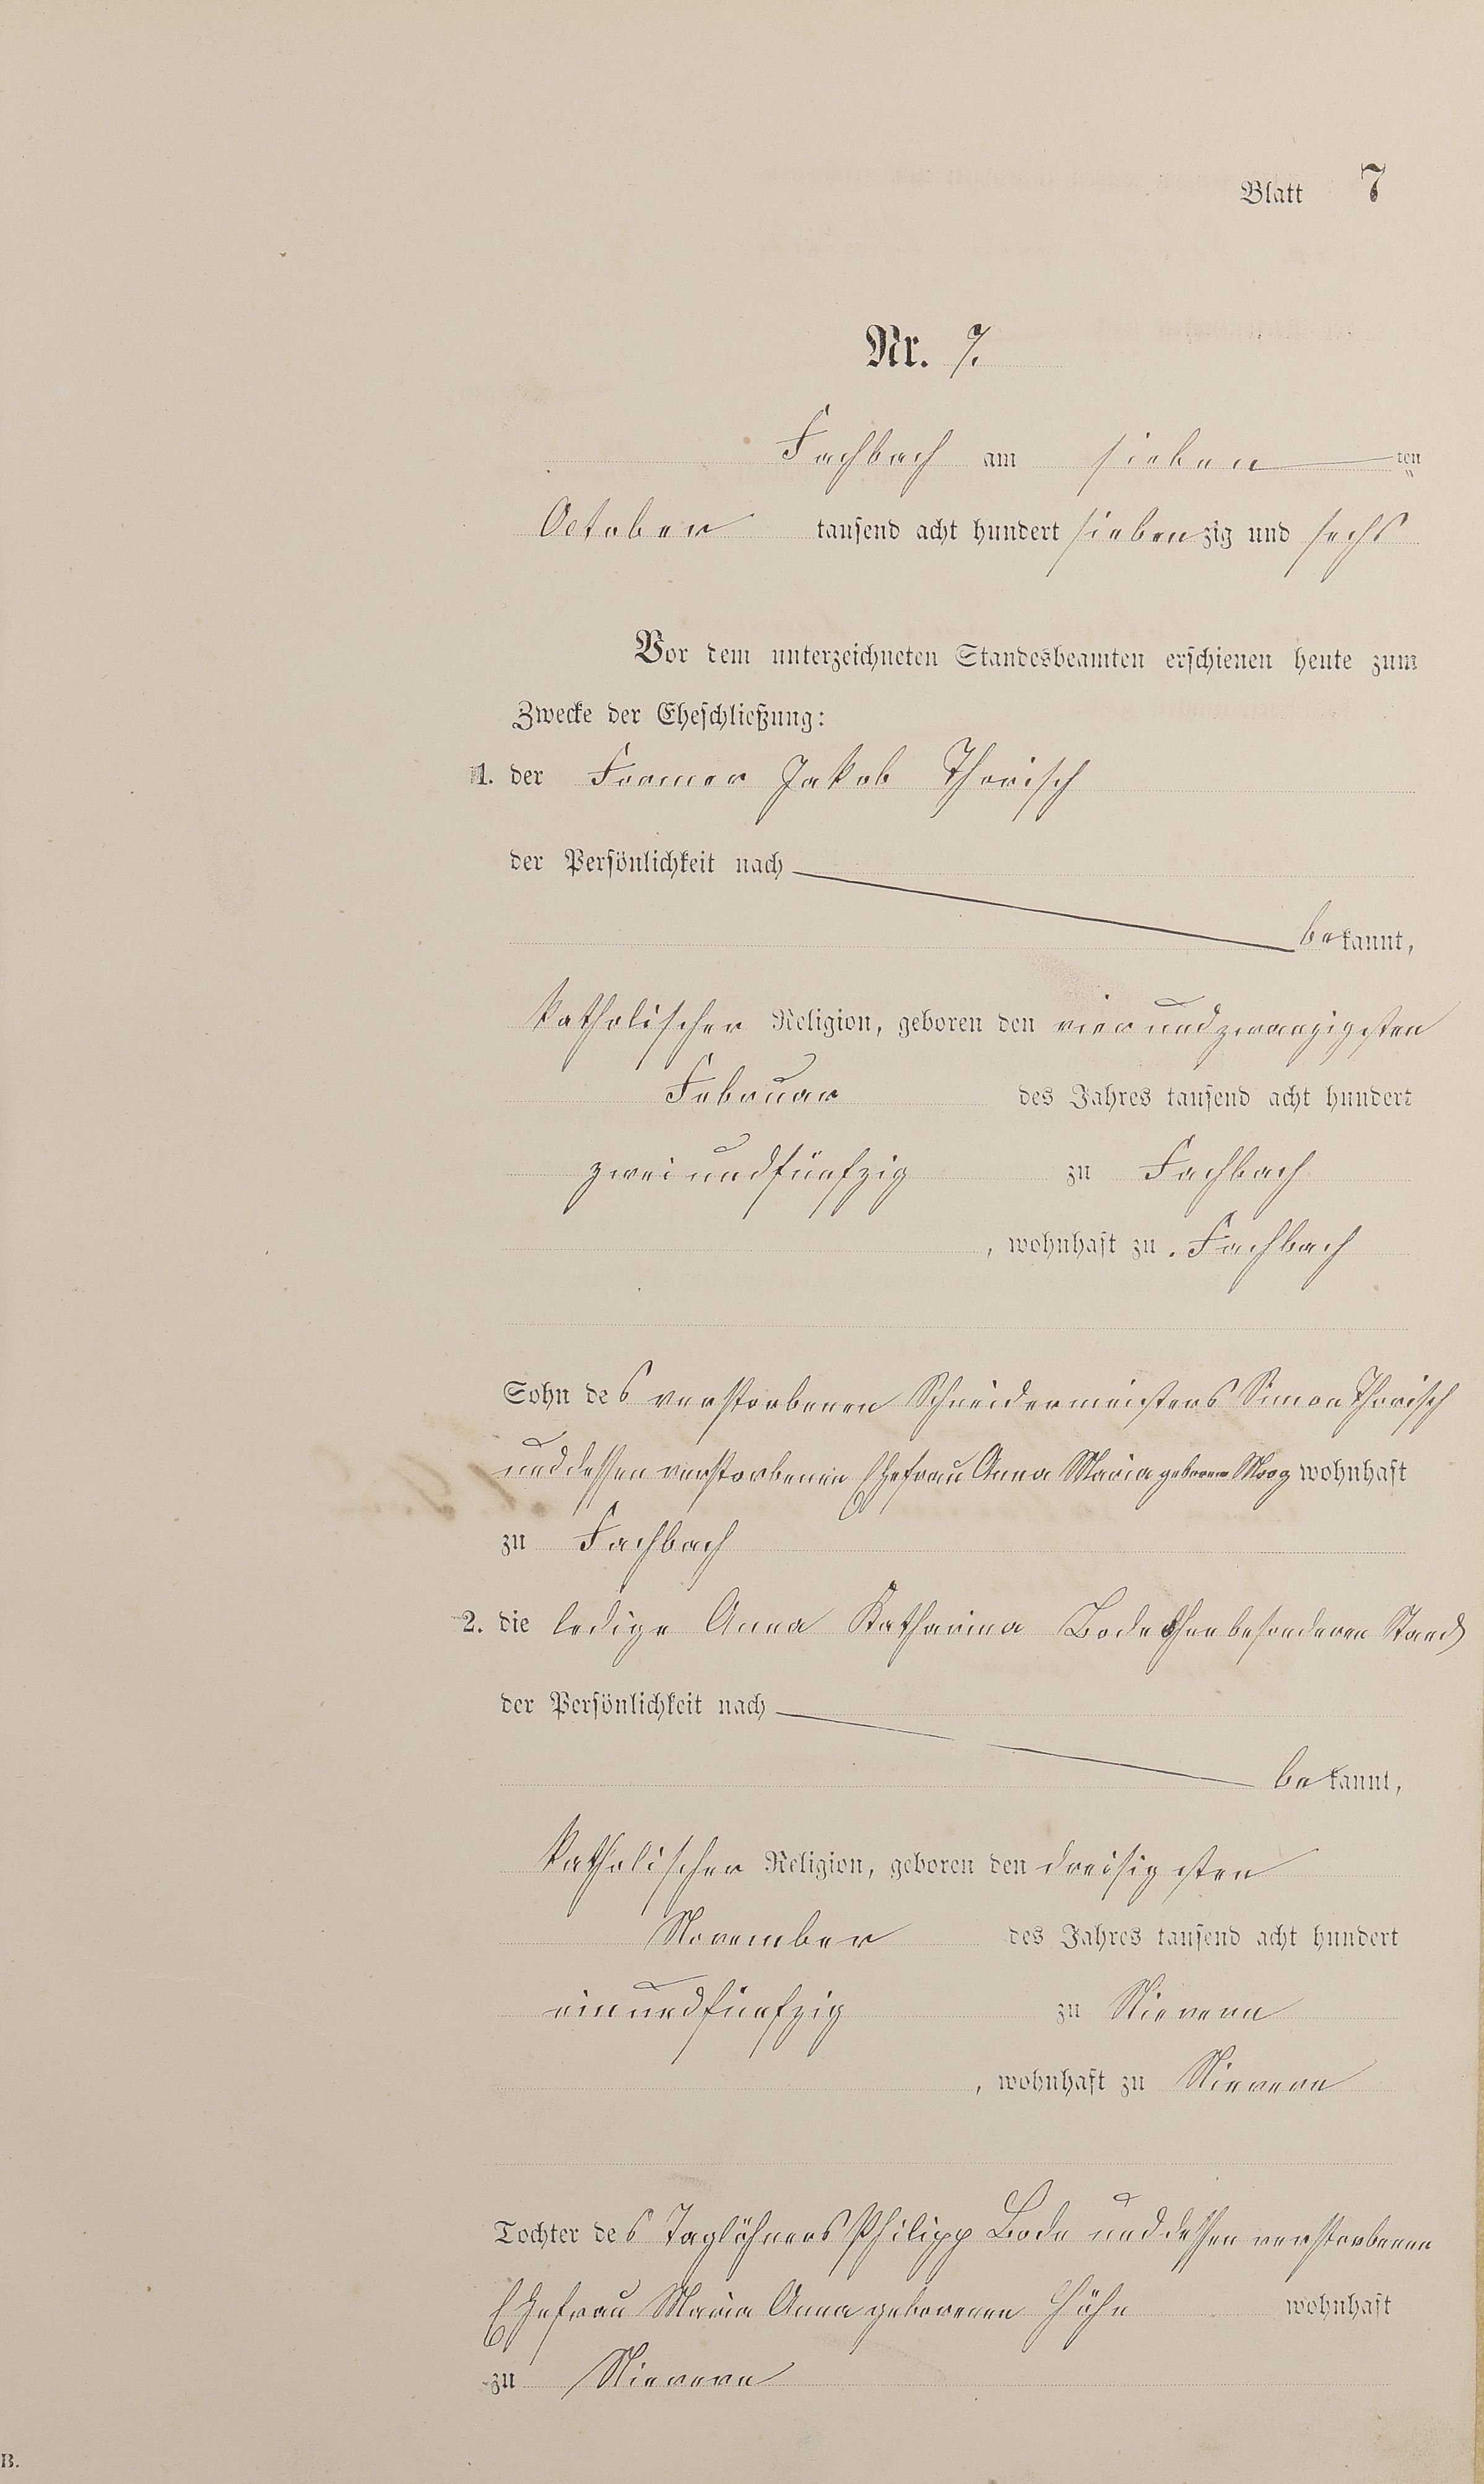 Blatt 7
Nr. 7.
Fachbach am sieben ten
October tausend acht hundert siebenzig und sechs
Vor dem unterzeichneten Standesbeamten erschienen heute zum
Zwecke der Eheschließung:
1. der Former Jakob Thorisch
der Persönlichkeit nach
bekannt,
katholischer Religion, geboren den vierundzwanzigsten
Februar des Jahres tausend acht hundert
zweiundfünfzig zu Fachbach
, wohnhaft zu Fachbach
Sohn des verstorbenen Schneidermeisters Simon Thorisch
und dessen verstorbenen Ehefrau Anna Maria geborene Morg wohnhaft
zu Fachbach
2. die ledige Anna Katharina Bode ohne besonderen Stand
der Persönlichkeit nach
bekannt,
katholischer Religion, geboren den dreisigsten
November des Jahres tausend acht hundert
einundfünfzig zu Nievern
, wohnhaft zu Nievern
Tochter des Taglöhners Philipp Bode und dessen verstorbenen
Ehefrau Maria Anna geborenen Höhn wohnhaft
zu Nievern
B.